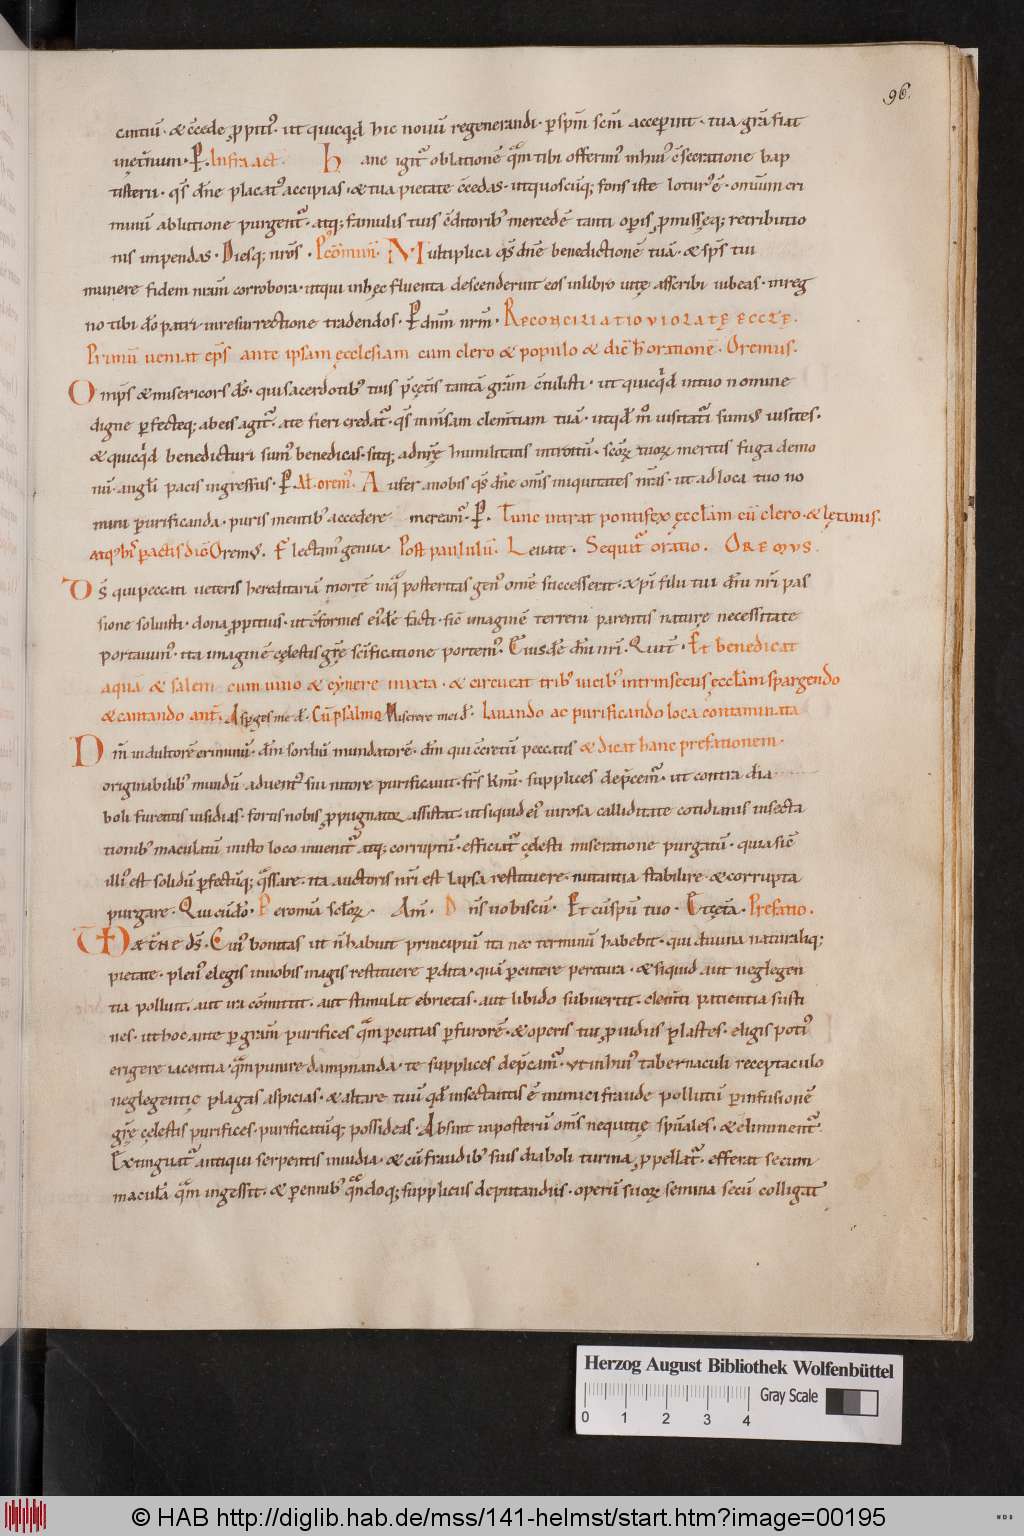 96.
cintiū · & c̄cede ꝓpitī · ut quicq̣d hic nouū regenerandi · p sp̄m sc̄m acceperint · tua grā fiat
inet̄num · P. Infra act̄ · Hanc igit̄ oblationē q̄m tibi offerimꝰ in huiꝰ c̄secratione bap
tisterii · q̄s dn̄e placatꝰ accipias · & tua pietate c̄cedas · ut quoscūq; fons iste loturꝰ ē · omnium cri
minū ablutione purgent̄ · atq; famulis tuis c̄ditoribꝰ mercedē tanti opis ꝓmissęq; retributio
nis impendas · Diesq; nr̄os · P̄com̄un̄ · Multiplica q̄s dn̄e benedictionē tuā · & sp̄s tui
munere fidem nr̄am corrobora · ut qui in hęc fluenta descenderint eos in libro uitę asscribi iubeas · in reg
no tibi do patri in resurrectione tradendos · P dn̄m nr̄m · RECONCILIATIO VIOLATĘ ECCLĘ ·
Primū ueniat ep̄s ante ipsam ęcclesiam cum clero & populo & dic̄ h̄ orationē · Oremus ·
Omp̄s & misericors d̄s · qui sacerdotibꝰ tuis p̄cet̄is tantā grām c̄tulisti · ut quicq̣d in tuo nomine
digne perfecteq; ab eis agit̄ · a te fieri credat̄ · q̄s inm̄sam clem̄tiam tuā · ut q̣d m̄ uisitat̄i sumꝰ uisites ·
& quicq̣d benedicturi sumꝰ benedicas · sitq; ad nr̄ę humilitatis introitū · sc̄orꝝ tuorꝝ meritis fuga demo
nū · angl̄i pacis ingressus · P. Al̄ · orem̄ · Aufer a nobis q̄s dn̄e om̄s iniquitates nr̄as · ut ad loca tuo no
mini purificanda · puris mentibꝰ accedere mereamꝰ · P. Tunc intrat pontifex ęccl̄am cū clero · & lętanus ·
atq; h̄is pactis dic̄ Oremꝰ. Flectamꝰ genua · Post paululū · Leuate · Sequit̄ oratio · OREMUS ·
D̄s qui peccati ueteris hereditariā mortē in q̄ posteritas genꝰ omē successerit · xp̄i filii tui dn̄i nr̄i pas
sione soluisti · dona ꝓpitius · ut c̄formes eid̄e facti · sic̄ imaginē terreni parentis naturę necessitate
portauimꝰ · ita imaginē cęlestis gr̄ę sc̄ificatione portemꝰ · Eiusd̄e dn̄i nr̄i · Qui t̄ · Et benedicat
aquā & salem cum uino & cynere mixta · & circueat tribꝰ uicibꝰ intrinsecus ęccl̄am spargendo
& cantando ant̄ · Asperges me d̄ · Cū psalmo Miserere mei d̄ · lauando ac purificando loca contaminata
Dn̄m indultorē criminū · dn̄m sordiū mundatorē · dn̄m qui c̄cretū peccatis & dicat hanc prefationem ·
originalibꝰ mundū aduentꝰ sui nitore purificauit · fr̄s km̄i · supplices dep̄cemꝰ · ut contra dia
boli furentis insidias · fortis nobis ꝓpugnator assistat · ut siquid eiꝰ uirosa calliditate cotidianis infecta
tionibꝰ maculatū in isto loco inuenit̄ atq; corruptū · efficiat̄ cęlesti miseratione purgatū · quia sic̄
illiꝰ est solidū pfectūq; q̄ssare · ita auctoris nr̄i est lapsa restituere · nutantia stabilire · & corrupta
purgare · Qui cūd̄o · Per om̄ia scl̄orꝝ · Am̄ · Dn̄s uobiscū · Et cū spū tuo · Prefatio ·
VD æt̄ne d̄s · Cuiꝰ bonitas ut n̄ habuit principiū ita nec terminū habebit · qui diuina naturaliq;
pietate · plenꝰ elegis in nobis magis restituere pdita · quā pcutere peritura · & siquid aut neglegen
tia polluit · aut ira com̄ittit · aut stimulat ebrietas · aut libido subuertit · clem̄ti patientia susti
nes · ut hoc ante p grām purifices q̄m pcutias p furorē · & operis tui ꝓuidus plastes · eligis potiꝰ
erigere iacentia · q̄m punire dampnanda · te supplices dep̄camꝰ · ut in huiꝰ tabernaculi receptaculo
neglegentię plagas aspicias · & altare tuū q̣d insectantis ē inimici fraude pollutū p infusionē
gr̄ę cęlestis purifices · purificatūq; possideas · Absint in posterū om̄s nequitię sp̄uales · & eliminent̄ ·
Extinguat̄ antiqui serpentis inuidia · & cū fraudibꝰ suis diaboli turma ꝓpellat̄ · efferat secum
maculā q̄m ingessit · & pennibꝰ q̄ndoq; suppliciis deputandus · operū suorꝝ semina secū colligat
Herzog August Bibliothek Wolfenbüttel
Gray Scale
0 1 2 3 4
© HAB http://diglib.hab.de/mss/141-helmst/start.htm?image=00195